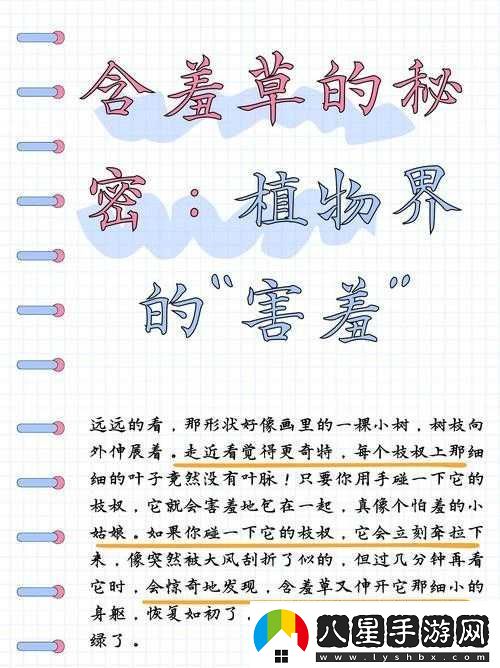 含羞草的秘
密：植物界
的“害羞”
远远的看，那形状好像画里的一棵小树，树枝向
外伸展着。走近看觉得更奇特，每个枝杈上那细
细的叶子竟然没有叶脉！只要你用手碰一下它的
枝杈，它就会害羞地包在一起，真像个怕羞的小
姑娘。如果你碰一下它的枝杈，它会立刻奔拉下
来，像突然被大风刮折了似的，但过几分钟再看
它时，会惊奇地发现，含羞草又伸开它那细小的
身躯，恢复如初了，
绿了。
八星手游网
www.lyshbx.com